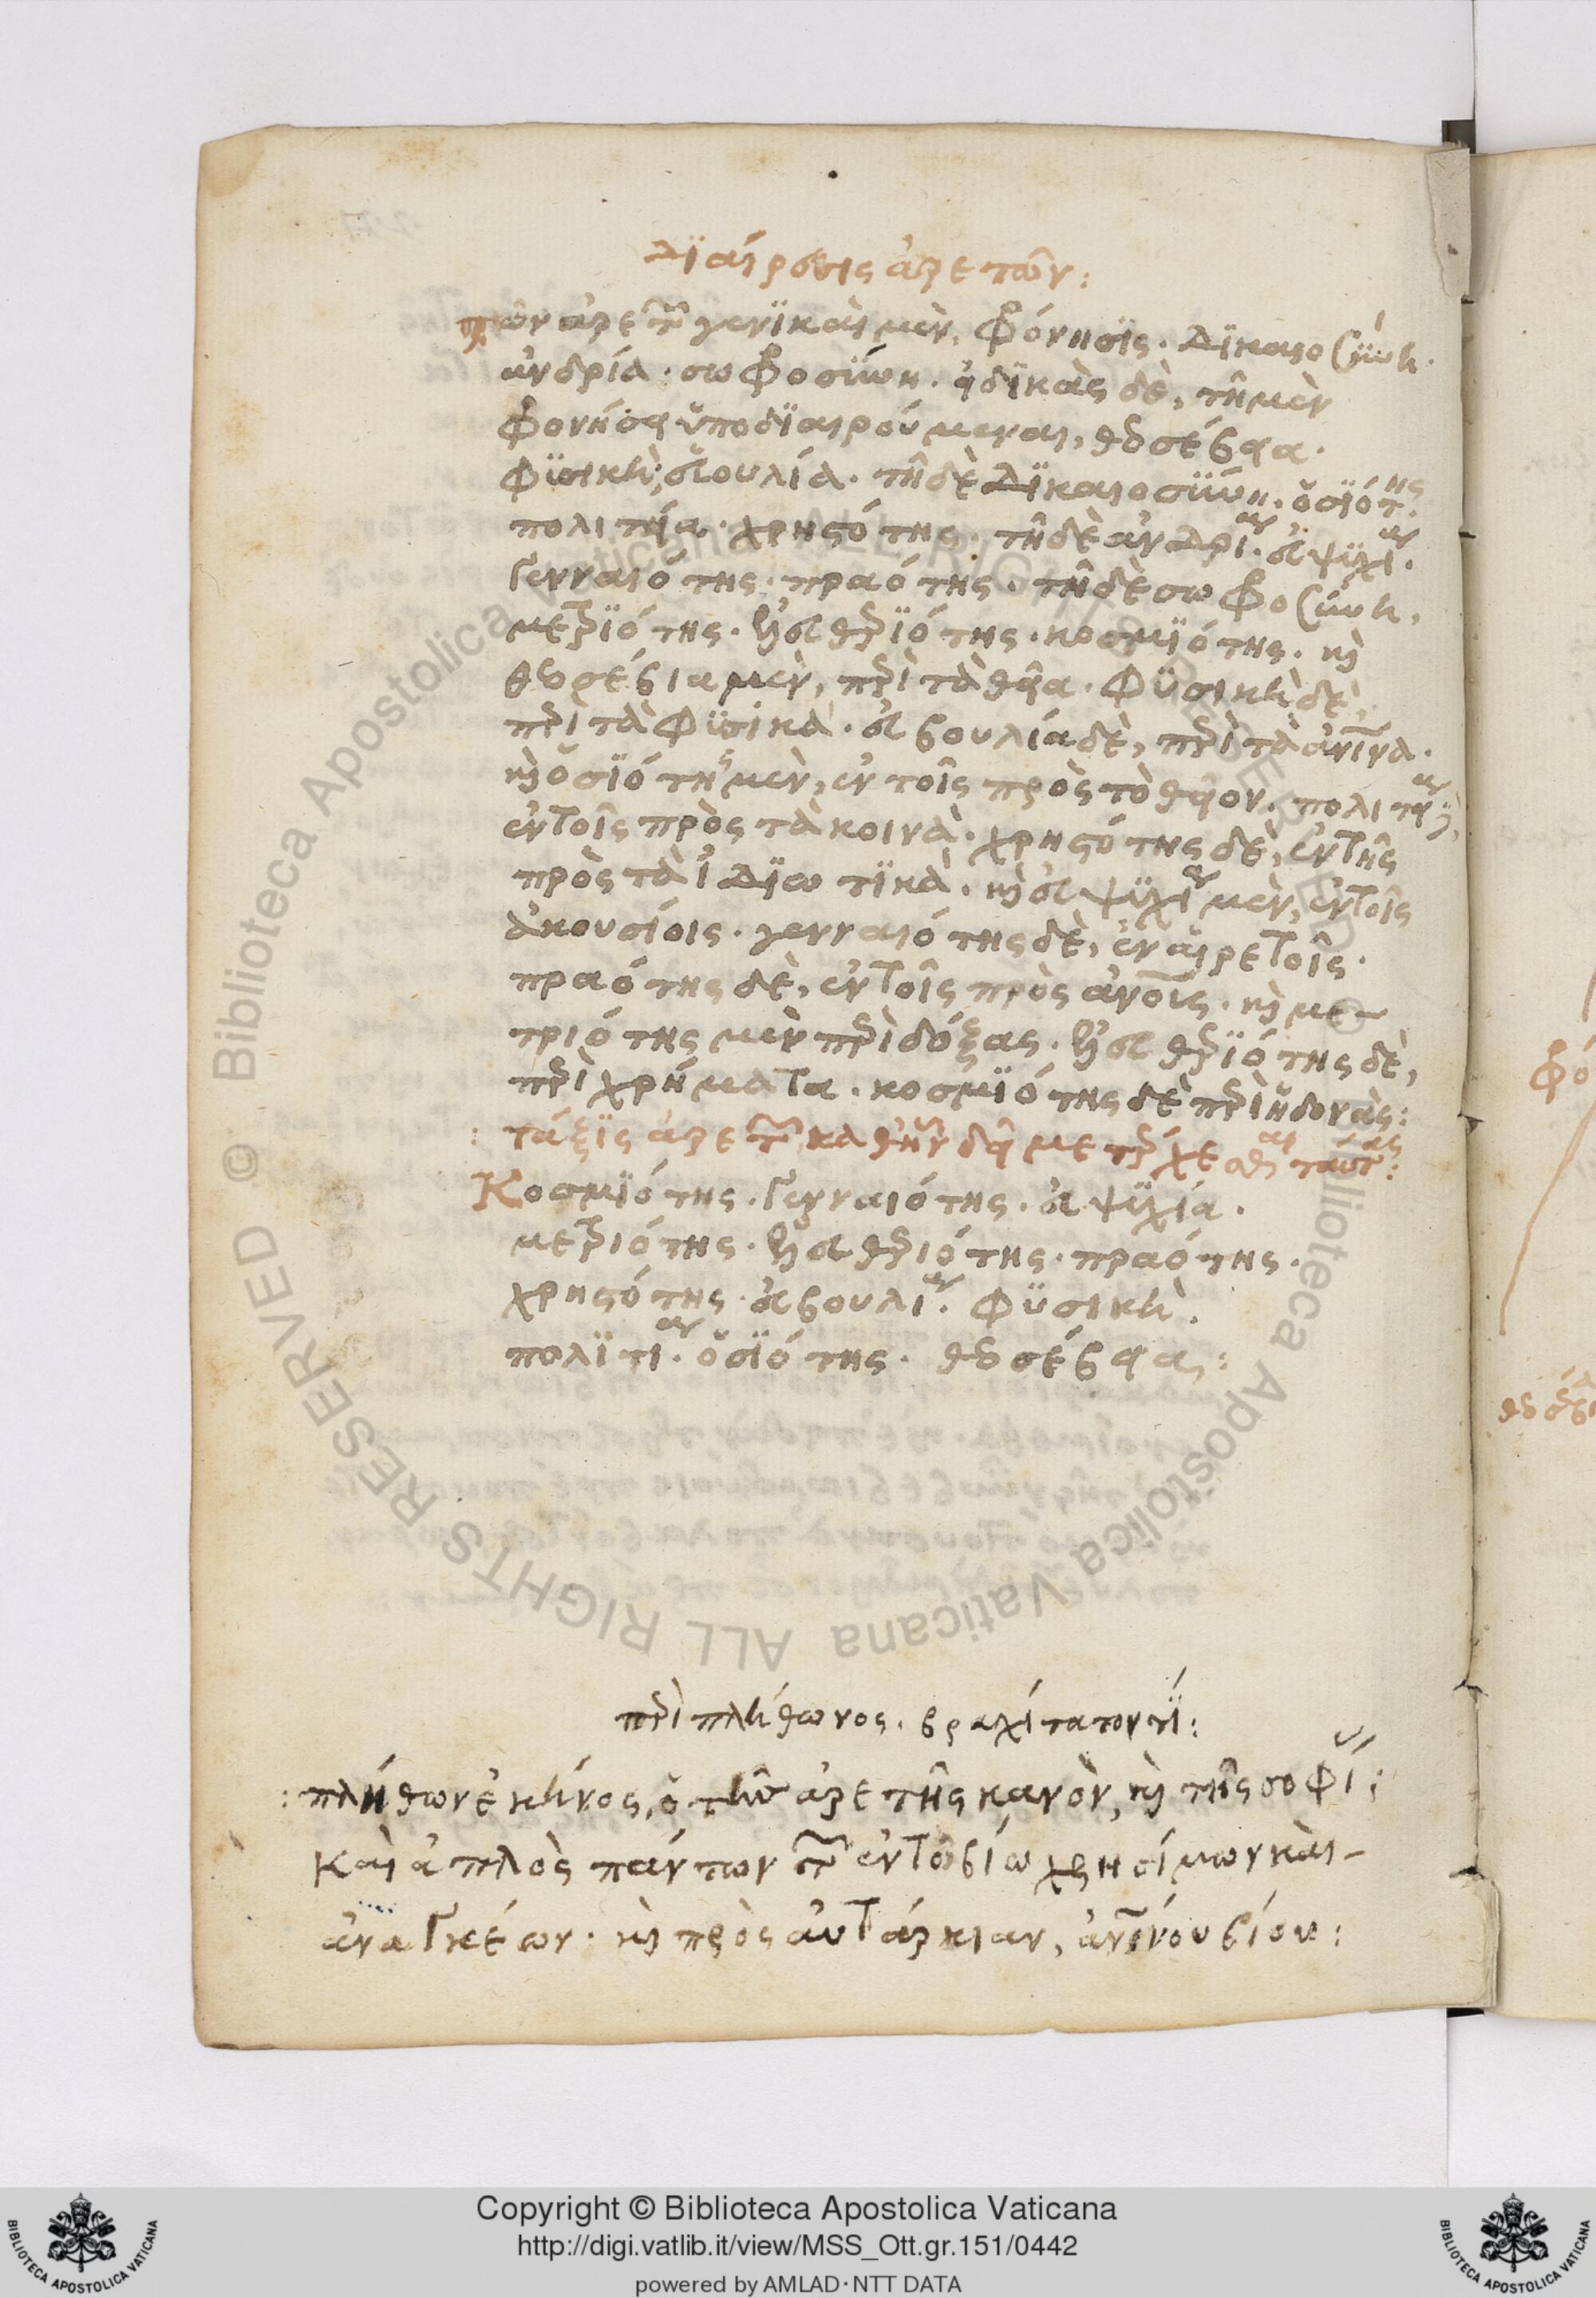 Διαίρεσις ἀρετῶν:
τῶν ἀρετῶν γενϊκαὶ μὲν, φρόνησϊς. Δϊκαιοσϋνη.
ἀνδρία. σωφροσϋνη. εἰδϊκὰς δὲ, τῆ μὲν
φρονήσει ὑποδϊαιρούμεναι, θεοσέβεια.
Φϋσικὴ; εὐβουλία. τῆ δὲ Δϊκαιοσϋνη. ὁσϊότης.
πολιτεία. χρηστότης. τῆ δὲ ἀνδρία. εὐψϋχία.
Γενναιότης. πραότης. τῆ δὲ σωφροσύνη,
μετρϊότης. ἐλευθερϊότης. κοσμϊότης. καὶ
θεοσέβια μὲν, περὶ τὰ θεῖα. Φϋσικὴ δὲ,
περὶ τὰ Φϋσικά. εὐβουλία δὲ, περὶ τὰ ἀνθρώπινα.
καὶ ὁσϊότης μὲν, ἐν τοῖς πρὸς τὸ θεῖον. πολιτεία δὲ,
ἐν τοῖς πρὸς τὰ κοινὰ. χρηστότης δὲ, ἐν τῆς
πρὸς τὰ ἰδϊωτϊκὰ. καὶ εὐψϋχία μὲν, ἐν τοῖς
ἀκουσίοις. γενναιότης δὲ, ἐν αἱρετοῖς.
πραότης δὲ, ἐν τοῖς πρὸς ἀνθρώποις. καὶ με-
τριότης μὲν περὶ δόξας. ἐλευθερϊότης δὲ,
περὶ χρήματα. κοσμϊότης δὲ περὶ ἡδονὰς:
: τάξϊς ἀρετῶν καθ' ἣν δεῖ μετέρχεσθαι ταύτας:
Κοσμϊότης. Γενναιότης. εὐψϋχία.
μετριότης. ἐλευθεριότης. πραότης.
χρηστότης. εὐβουλία. Φϋσικὴ.
πολϊτία. ὁσϊότης. θεοσέβεια:
περὶ πλήθωνος. βραχίτατον τϊ:
: πλήθων ἐκῆνος, ὁ τῶν ἀρετῆς κανὸν, καὶ τῆς σοφίας:
Καὶ ἁπλὸς πάντον τῶν ἐν τῶ βίω χρησίμων καὶ-
ἀναΓκέων. καὶ πρὸς αὐτάρκιαν, ἀνθρωπίνου βίου:
Copyright © Biblioteca Apostolica Vaticana
http://digi.vatlib.it/view/MSS_Ott.gr.151/0442
powered by AMLAD·NTT DATA